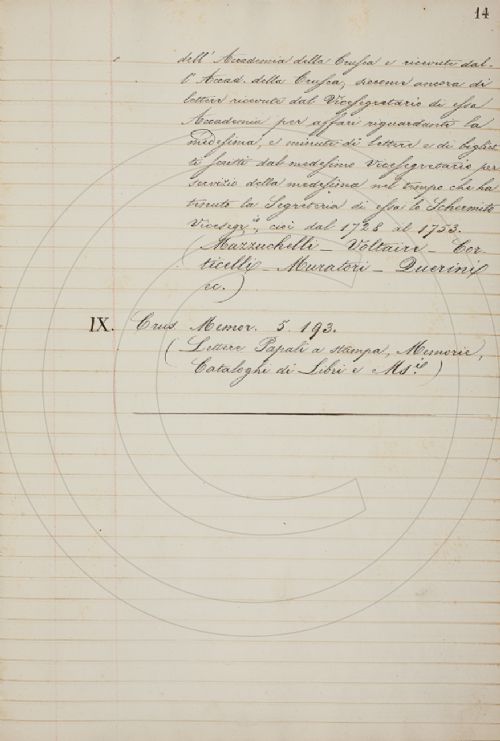 14
dell' Accademia della Crusca e ricevute dal-
l' Accad. della Crusca, siccome ancora di
lettere ricevute dal Vicesegretario di essa
Accademia per affari riguardanti la
medesima, e minute di lettere e di bigliet
ti scritti dal medesimo Vicesegretario per
servizio della medesima nel tempo che ha
tenuto la Segreteria di essa lo Schermito
Vicesegr.º, cioè dal 1728 al 1753.
(Mazzuchelli - Voltaire - Cor
ticelli - Muratori - Querini
ec.)
IX. Crus. Memor. 5. 193.
(Lettere Papali a stampa, Memorie,
Cataloghi di Libri e Mss.)